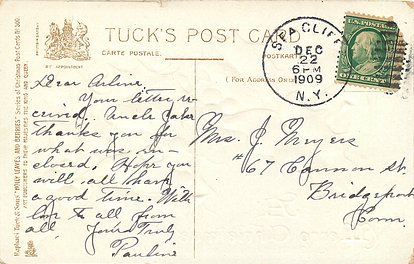 TUCK'S POST CARD
CARTE POSTALE.
POSTKARTE.
BY APPOINTMENT
(FOR ADDRESS ONLY
SEA CLIFF
DEC
22
6 PM
1909
N.Y.
U.S. POSTAGE
ONE CENT
Dear Arline:
Your letter re-
ceived. Uncle Jake
thanks you for
what was en-
closed. Hope you
will all have
a good time. With
love to all from
all. Yours Truly
Pauline
Mrs. J. Meyers
#67 Cannon St.
Bridgeport
Conn.
Raphael Tuck & Sons' "HOLLY LEAVES AND BERRIES" Series of Christmas Post Cards
ART PUBLISHERS TO THEIR MAJESTIES THE KING AND QUEEN